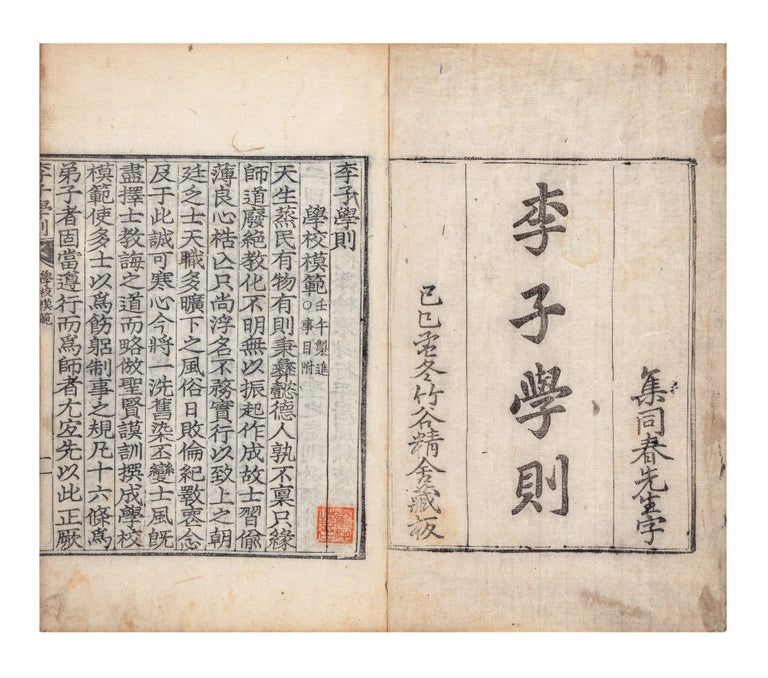 集同春先生字
李子學則
己巳孟冬竹谷精舍藏板
李子學則
學校模範 壬午製進○事目附
天生蒸民有物有則秉彝懿德人孰不稟只緣
師道廢絕教化不明無以振起作成故士習偷
薄良心梏亾只尚浮名不務實行以致上之朝
廷乏士天職多曠下之風俗日敗倫紀斁喪念
及于此誠可寒心今將一洗舊染丕變士風旣
盡擇士教誨之道而略倣聖賢謨訓撰成學校
模範使多士以爲飭躬制事之規凡十六條爲
弟子者固當遵行而爲師者尤宜先以此正厥
李子學則 學校模範 一